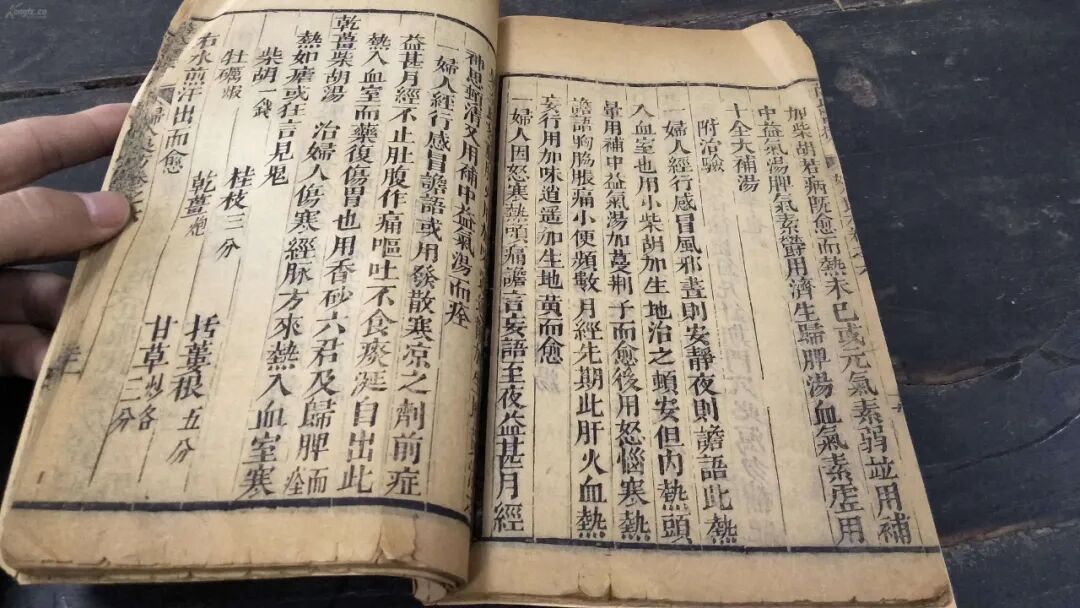 加柴胡若病既愈而熱未已或元氣素弱並用補
中益氣湯脾氣素欝用濟生歸脾湯血氣素虛用
十全大補湯
附治驗
一婦人經行感冒風邪晝則安靜夜則譫語此熱
入血室也用小柴胡加生地治之頓安但內熱頭
暈用補中益氣湯加蔓荆子而愈後用怒惱寒熱
譫語胸脇脹痛小便頻數月經先期此肝火血熱
妄行用加味逍遥加生地黄而愈
一婦人因怒寒熱頭痛譫言妄語至夜益甚月經
神思頓清又用補中益氣湯而痊
一婦人經行感冒譫語或用發散寒凉之劑前症
益甚月經不止肚腹作痛嘔吐不食痰涎自出此
熱入血室而藥復傷胃也用香砂六君及歸脾而痊
乾薑柴胡湯 治婦人傷寒經脉方來熱入血室寒
熱如瘧或狂言見鬼
柴胡一錢 桂枝三分 括蔞根五分
牡礪煅 乾薑炮 甘草炒各三分
右水煎汗出而愈